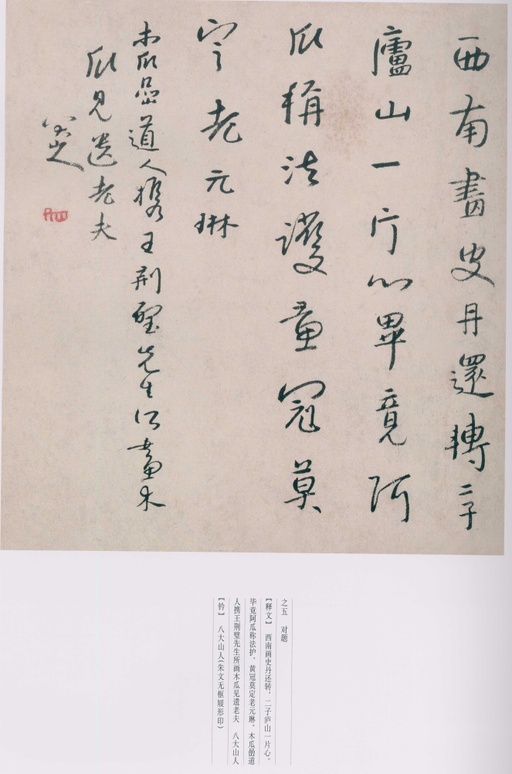 西南畫史丹還轉二子
廬山一片心畢竟阿
瓜稱法護黃冠莫
定老元琳
木瓜喦道人攜王荊璧先生所畫木
瓜見遺老夫
八大山人
之五 对题
【释文】 西南画史丹还转，二子庐山一片心。
毕竟阿瓜称法护，黄冠莫定老元琳。木瓜喦道
人携王荆璧先生所画木瓜见遗老夫 八大山人
【钤】 八大山人（朱文无框屐形印）